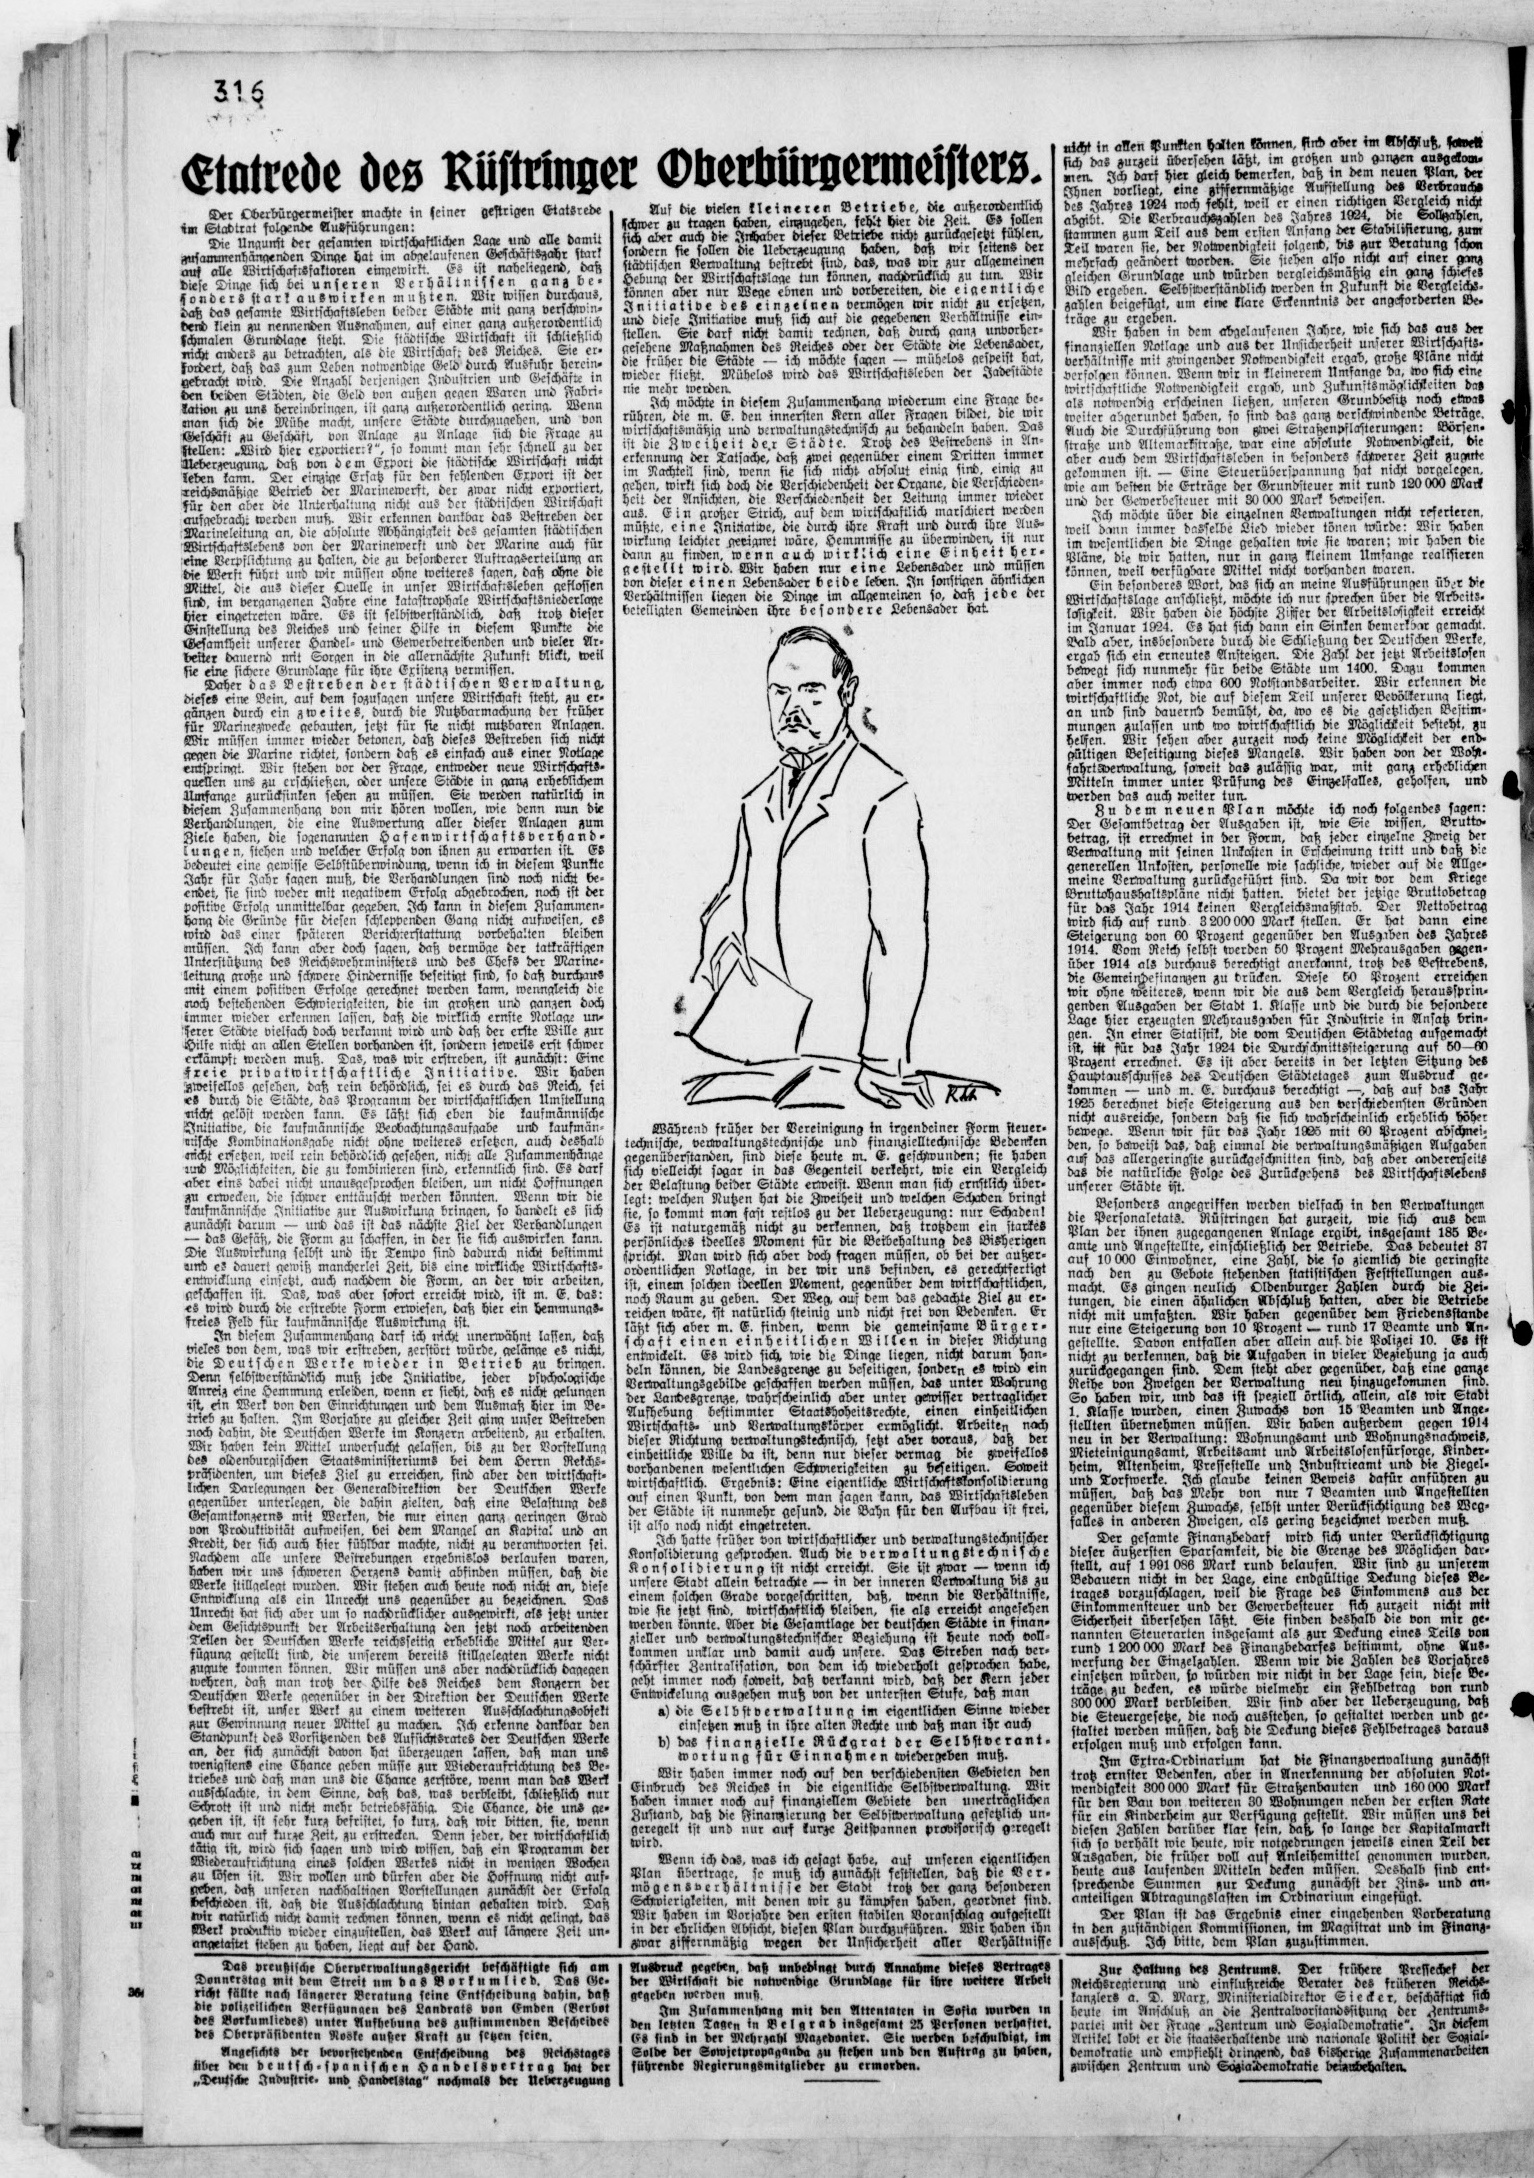 316
Etatrede des Rüstringer Oberbürgermeisters.
Der Oberbürgermeister machte in seiner gestrigen Etatsrede
im Stadtrat folgende Ausführungen:
Die Ungunst der gesamten wirtschaftlichen Lage und alle damit
zusammenhängenden Dinge hat im abgelaufenen Geschäftsjahr stark
auf alle Wirtschaftsfaktoren eingewirkt. Es ist naheliegend, daß
diese Dinge sich bei unseren Verhältnissen ganz be-
sonders stark auswirken mußten. Wir wissen durchaus,
daß das gesamte Wirtschaftsleben beider Städte mit ganz verschwin-
dend klein zu nennenden Ausnahmen, auf einer ganz außerordentlich
schmalen Grundlage steht. Die städtische Wirtschaft ist schließlich
nicht anders zu betrachten, als die Wirtschaft des Reiches. Sie er-
fordert, daß das zum Leben notwendige Geld durch Ausfuhr herein-
gebracht wird. Die Anzahl derjenigen Industrien und Geschäfte in
den beiden Städten, die Geld von außen gegen Waren und Fabri-
kation zu uns hereinbringen, ist ganz außerordentlich gering. Wenn
man sich die Mühe macht, unsere Städte durchzugehen, und von
Geschäft zu Geschäft, von Anlage zu Anlage sich die Frage zu
stellen: „Wird hier exportiert?“, so kommt man sehr schnell zu der
Ueberzeugung, daß von dem Export die städtische Wirtschaft nicht
leben kann. Der einzige Ersatz für den fehlenden Export ist der
reichsmäßige Betrieb der Marinewerft, der zwar nicht exportiert,
für den aber die Unterhaltung nicht aus der städtischen Wirtschaft
aufgebracht werden muß. Wir erkennen dankbar das Bestreben der
Marineleitung an, die absolute Abhängigkeit des gesamten städtischen
Wirtschaftslebens von der Marinewerft und der Marine auch für
eine Verpflichtung zu halten, die zu besonderer Auftragserteilung an
die Werft führt und wir müssen ohne weiteres sagen, daß ohne die
Mittel, die aus dieser Quelle in unser Wirtschaftsleben geflossen
sind, im vergangenen Jahre eine katastrophale Wirtschaftsniederlage
hier eingetreten wäre. Es ist selbstverständlich, daß trotz dieser
Einstellung des Reiches und seiner Hilfe in diesem Punkte die
Gesamtheit unserer Handel- und Gewerbetreibenden und vieler Ar-
beiter dauernd mit Sorgen in die allernächste Zukunft blickt, weil
sie eine sichere Grundlage für ihre Existenz vermissen.
Daher das Bestreben der städtischen Verwaltung,
dieses eine Bein, auf dem sozusagen unsere Wirtschaft steht, zu er-
gänzen durch ein zweites, durch die Nutzbarmachung der früher
für Marinezwecke gebauten, jetzt für sie nicht nutzbaren Anlagen.
Wir müssen immer wieder betonen, daß dieses Bestreben sich nicht
gegen die Marine richtet, sondern daß es einfach aus einer Notlage
entspringt. Wir stehen vor der Frage, entweder neue Wirtschafts-
quellen uns zu erschließen, oder unsere Städte in ganz erheblichem
Umfange zurücksinken sehen zu müssen. Sie werden natürlich in
diesem Zusammenhang von mir hören wollen, wie denn nun die
Verhandlungen, die eine Auswertung aller dieser Anlagen zum
Ziele haben, die sogenannten Hafenwirtschaftsverhand-
lungen, stehen und welcher Erfolg von ihnen zu erwarten ist. Es
bedeutet eine gewisse Selbstüberwindung, wenn ich in diesem Punkte
Jahr für Jahr sagen muß, die Verhandlungen sind noch nicht be-
endet, sie sind weder mit negativem Erfolg abgebrochen, noch ist der
positive Erfolg unmittelbar gegeben. Ich kann in diesem Zusammen-
hang die Gründe für diesen schleppenden Gang nicht aufweisen, es
wird das einer späteren Berichterstattung vorbehalten bleiben
müssen. Ich kann aber doch sagen, daß vermöge der tatkräftigen
Unterstützung des Reichswehrministers und des Chefs der Marine-
leitung große und schwere Hindernisse beseitigt sind, so daß durchaus
mit einem positiven Erfolge gerechnet werden kann, wenngleich die
noch bestehenden Schwierigkeiten, die im großen und ganzen doch
immer wieder erkennen lassen, daß die wirklich ernste Notlage un-
serer Städte vielfach doch verkannt wird und daß der erste Wille zur
Hilfe nicht an allen Stellen vorhanden ist, sondern jeweils erst schwer
erkämpft werden muß. Das, was wir erstreben, ist zunächst: Eine
freie privatwirtschaftliche Initiative. Wir haben
zweifellos gesehen, daß rein behördlich, sei es durch das Reich, sei
es durch die Städte, das Programm der wirtschaftlichen Umstellung
nicht gelöst werden kann. Es läßt sich eben die kaufmännische
Initiative, die kaufmännische Beobachtungsaufgabe und kaufmän-
nische Kombinationsgabe nicht ohne weiteres ersetzen, auch deshalb
nicht ersetzen, weil rein behördlich gesehen, nicht alle Zusammenhänge
und Möglichkeiten, die zu kombinieren sind, erkenntlich sind. Es darf
aber eins dabei nicht unausgesprochen bleiben, um nicht Hoffnungen
zu erwecken, die schwer enttäuscht werden könnten. Wenn wir die
kaufmännische Initiative zur Auswirkung bringen, so handelt es sich
zunächst darum — und das ist das nächste Ziel der Verhandlungen
— das Gefäß, die Form zu schaffen, in der sie sich auswirken kann.
Die Auswirkung selbst und ihr Tempo sind dadurch nicht bestimmt
und es dauert gewiß mancherlei Zeit, bis eine wirkliche Wirtschafts-
entwicklung einsetzt, auch nachdem die Form, an der wir arbeiten,
geschaffen ist. Das, was aber sofort erreicht wird, ist m. E. das:
es wird durch die erstrebte Form erwiesen, daß hier ein hemmungs-
freies Feld für kaufmännische Auswirkung ist.
In diesem Zusammenhang darf ich nicht unerwähnt lassen, daß
vieles von dem, was wir erstreben, zerstört würde, gelänge es nicht,
die Deutschen Werke wieder in Betrieb zu bringen.
Denn selbstverständlich muß jede Initiative, jeder psychologische
Anreiz eine Hemmung erleiden, wenn er sieht, daß es nicht gelungen
ist, ein Werk von den Einrichtungen und dem Ausmaß hier im Be-
trieb zu halten. Im Vorjahre zu gleicher Zeit ging unser Bestreben
noch dahin, die Deutschen Werke im Konzern arbeitend, zu erhalten.
Wir haben kein Mittel unversucht gelassen, bis zu der Vorstellung
des oldenburgischen Staatsministeriums bei dem Herrn Reichs-
präsidenten, um dieses Ziel zu erreichen, sind aber den wirtschaft-
lichen Darlegungen der Generaldirektion der Deutschen Werke
gegenüber unterlegen, die dahin zielten, daß eine Belastung des
Gesamtkonzerns mit Werken, die nur einen ganz geringen Grad
von Produktivität aufweisen, bei dem Mangel an Kapital und an
Kredit, der sich auch hier fühlbar machte, nicht zu verantworten sei.
Nachdem alle unsere Bestrebungen ergebnislos verlaufen waren,
haben wir uns schweren Herzens damit abfinden müssen, daß die
Werke stillgelegt wurden. Wir stehen auch heute noch nicht an, diese
Entwicklung als ein Unrecht uns gegenüber zu bezeichnen. Das
Unrecht hat sich aber um so nachdrücklicher ausgewirkt, als jetzt unter
dem Gesichtspunkt der Arbeitserhaltung den jetzt noch arbeitenden
Teilen der Deutschen Werke reichsseitig erhebliche Mittel zur Ver-
fügung gestellt sind, die unserem bereits stillgelegten Werke nicht
zugute kommen können. Wir müssen uns aber nachdrücklich dagegen
wehren, daß man trotz der Hilfe des Reiches dem Konzern der
Deutschen Werke gegenüber in der Direktion der Deutschen Werke
bestrebt ist, unser Werk zu einem weiteren Ausschlachtungsobjekt
zur Gewinnung neuer Mittel zu machen. Ich erkenne dankbar den
Standpunkt des Vorsitzenden des Aufsichtsrates der Deutschen Werke
an, der sich zunächst davon hat überzeugen lassen, daß man uns
wenigstens eine Chance geben müsse zur Wiederaufrichtung des Be-
triebes und daß man uns die Chance zerstöre, wenn man das Werk
ausschlachte, in dem Sinne, daß das, was verbleibt, schließlich nur
Schrott ist und nicht mehr betriebsfähig. Die Chance, die uns ge-
geben ist, ist sehr kurz befristet, so kurz, daß wir bitten, sie, wenn
auch nur auf kurze Zeit, zu erstrecken. Denn jeder, der wirtschaftlich
tätig ist, wird sich sagen und wird wissen, daß ein Programm der
Wiederaufrichtung eines solchen Werkes nicht in wenigen Wochen
zu lösen ist. Wir wollen und dürfen aber die Hoffnung nicht auf-
geben, daß unseren nachhaltigen Vorstellungen zunächst der Erfolg
beschieden ist, daß die Ausschlachtung hintan gehalten wird. Daß
wir natürlich nicht damit rechnen können, wenn es nicht gelingt, das
Werk produktiv wieder einzustellen, das Werk auf längere Zeit un-
angetastet stehen zu haben, liegt auf der Hand.
Auf die vielen kleineren Betriebe, die außerordentlich
schwer zu tragen haben, einzugehen, fehlt hier die Zeit. Es sollen
sich aber auch die Inhaber dieser Betriebe nicht zurückgesetzt fühlen,
sondern sie sollen die Ueberzeugung haben, daß wir seitens der
städtischen Verwaltung bestrebt sind, das, was wir zur allgemeinen
Hebung der Wirtschaftslage tun können, nachdrücklich zu tun. Wir
können aber nur Wege ebnen und vorbereiten, die eigentliche
Initiative des einzelnen vermögen wir nicht zu ersetzen,
und diese Initiative muß sich auf die gegebenen Verhältnisse ein-
stellen. Sie darf nicht damit rechnen, daß durch ganz unvorher-
gesehene Maßnahmen des Reiches oder der Städte die Lebensader,
die früher die Städte — ich möchte sagen — mühelos gespeist hat,
wieder fließt. Mühelos wird das Wirtschaftsleben der Jadestädte
nie mehr werden.
Ich möchte in diesem Zusammenhang wiederum eine Frage be-
rühren, die m. E. den innersten Kern aller Fragen bildet, die wir
wirtschaftsmäßig und verwaltungstechnisch zu behandeln haben. Das
ist die Zweiheit der Städte. Trotz des Bestrebens in An-
erkennung der Tatsache, daß zwei gegenüber einem Dritten immer
im Nachteil sind, wenn sie sich nicht absolut einig sind, einig zu
gehen, wirkt sich doch die Verschiedenheit der Organe, die Verschieden-
heit der Ansichten, die Verschiedenheit der Leitung immer wieder
aus. Ein großer Strich, auf dem wirtschaftlich marschiert werden
müßte, eine Initiative, die durch ihre Kraft und durch ihre Aus-
wirkung leichter geeignet wäre, Hemmnisse zu überwinden, ist nur
dann zu finden, wenn auch wirklich eine Einheit her-
gestellt wird. Wir haben nur eine Lebensader und müssen
von dieser einen Lebensader beide leben. In sonstigen ähnlichen
Verhältnissen liegen die Dinge im allgemeinen so, daß jede der
beteiligten Gemeinden ihre besondere Lebensader hat.
Während früher der Vereinigung in irgendeiner Form steuer-
technische, verwaltungstechnische und finanzielltechnische Bedenken
gegenüberstanden, sind diese heute m. E. geschwunden; sie haben
sich vielleicht sogar in das Gegenteil verkehrt, wie ein Vergleich
der Belastung beider Städte erweist. Wenn man sich ernstlich über-
legt: welchen Nutzen hat die Zweiheit und welchen Schaden bringt
sie, so kommt man fast restlos zu der Ueberzeugung: nur Schaden!
Es ist naturgemäß nicht zu verkennen, daß trotzdem ein starkes
persönliches ideelles Moment für die Beibehaltung des Bisherigen
spricht. Man wird sich aber doch fragen müssen, ob bei der außer-
ordentlichen Notlage, in der wir uns befinden, es gerechtfertigt
ist, einem solchen ideellen Moment, gegenüber dem wirtschaftlichen,
noch Raum zu geben. Der Weg, auf dem das gedachte Ziel zu er-
reichen wäre, ist natürlich steinig und nicht frei von Bedenken. Er
läßt sich aber m. E. finden, wenn die gemeinsame Bürger-
schaft einen einheitlichen Willen in dieser Richtung
entwickelt. Es wird sich, wie die Dinge liegen, nicht darum han-
deln können, die Landesgrenze zu beseitigen, sondern es wird ein
Verwaltungsgebilde geschaffen werden müssen, das unter Wahrung
der Landesgrenze, wahrscheinlich aber unter gewisser vertraglicher
Aufhebung bestimmter Staatshoheitsrechte, einen einheitlichen
Wirtschafts- und Verwaltungskörper ermöglicht. Arbeiten nach
dieser Richtung verwaltungstechnisch, setzt aber voraus, daß der
einheitliche Wille da ist, denn nur dieser vermag die zweifellos
vorhandenen wesentlichen Schwierigkeiten zu beseitigen. Soweit
wirtschaftlich. Ergebnis: Eine eigentliche Wirtschaftskonsolidierung
auf einen Punkt, von dem man sagen kann, das Wirtschaftsleben
der Städte ist nunmehr gesund, die Bahn für den Aufbau ist frei,
ist also noch nicht eingetreten.
Ich hatte früher von wirtschaftlicher und verwaltungstechnischer
Konsolidierung gesprochen. Auch die verwaltungstechnische
Konsolidierung ist nicht erreicht. Sie ist zwar — wenn ich
unsere Stadt allein betrachte — in der inneren Verwaltung bis zu
einem solchen Grade vorgeschritten, daß, wenn die Verhältnisse,
wie sie jetzt sind, wirtschaftlich bleiben, sie als erreicht angesehen
werden könnte. Aber die Gesamtlage der deutschen Städte in finan-
zieller und verwaltungstechnischer Beziehung ist heute noch voll-
kommen unklar und damit auch unsere. Das Streben nach ver-
schärfter Zentralisation, von dem ich wiederholt gesprochen habe,
geht immer noch soweit, daß verkannt wird, daß der Kern jeder
Entwickelung ausgehen muß von der untersten Stufe, daß man
a) die Selbstverwaltung im eigentlichen Sinne wieder
einsetzen muß in ihre alten Rechte und daß man ihr auch
b) das finanzielle Rückgrat der Selbstverant-
wortung für Einnahmen wiedergeben muß.
Wir haben immer noch auf den verschiedensten Gebieten den
Einbruch des Reiches in die eigentliche Selbstverwaltung. Wir
haben immer noch auf finanziellem Gebiete den unerträglichen
Zustand, daß die Finanzierung der Selbstverwaltung gesetzlich un-
geregelt ist und nur auf kurze Zeitspannen provisorisch geregelt
wird.
Wenn ich das, was ich gesagt habe, auf unseren eigentlichen
Plan übertrage, so muß ich zunächst feststellen, daß die Ver-
mögensverhältnisse der Stadt trotz der ganz besonderen
Schwierigkeiten, mit denen wir zu kämpfen haben, geordnet sind.
Wir haben im Vorjahre den ersten stabilen Voranschlag aufgestellt
in der ehrlichen Absicht, diesen Plan durchzuführen. Wir haben ihn
zwar ziffernmäßig wegen der Unsicherheit aller Verhältnisse
nicht in allen Punkten halten können, sind aber im Abschluß, soweit
sich das zurzeit übersehen läßt, im großen und ganzen ausgekom-
men. Ich darf hier gleich bemerken, daß in dem neuen Plan, der
Ihnen vorliegt, eine ziffernmäßige Aufstellung des Verbrauchs
des Jahres 1924 noch fehlt, weil er einen richtigen Vergleich nicht
abgibt. Die Verbrauchszahlen des Jahres 1924, die Sollzahlen,
stammen zum Teil aus dem ersten Anfang der Stabilisierung, zum
Teil waren sie, der Notwendigkeit folgend, bis zur Beratung schon
mehrfach geändert worden. Sie stehen also nicht auf einer ganz
gleichen Grundlage und würden vergleichsmäßig ein ganz schiefes
Bild ergeben. Selbstverständlich werden in Zukunft die Vergleichs-
zahlen beigefügt, um eine klare Erkenntnis der angeforderten Be-
träge zu ergeben.
Wir haben in dem abgelaufenen Jahre, wie sich das aus der
finanziellen Notlage und aus der Unsicherheit unserer Wirtschafts-
verhältnisse mit zwingender Notwendigkeit ergab, große Pläne nicht
verfolgen können. Wenn wir in kleinerem Umfange da, wo sich eine
wirtschaftliche Notwendigkeit ergab, und Zukunftsmöglichkeiten das
als notwendig erscheinen ließen, unseren Grundbesitz noch etwas
weiter abgerundet haben, so sind das ganz verschwindende Beträge.
Auch die Durchführung von zwei Straßenpflasterungen: Börsen-
straße und Altemarktstraße, war eine absolute Notwendigkeit, die
aber auch dem Wirtschaftsleben in besonders schwerer Zeit zugute
gekommen ist. — Eine Steuerüberspannung hat nicht vorgelegen,
wie am besten die Erträge der Grundsteuer mit rund 120 000 Mark
und der Gewerbesteuer mit 30 000 Mark beweisen.
Ich möchte über die einzelnen Verwaltungen nicht referieren,
weil dann immer dasselbe Lied wieder tönen würde: Wir haben
im wesentlichen die Dinge gehalten wie sie waren; wir haben die
Pläne, die wir hatten, nur in ganz kleinem Umfange realisieren
können, weil verfügbare Mittel nicht vorhanden waren.
Ein besonderes Wort, das sich an meine Ausführungen über die
Wirtschaftslage anschließt, möchte ich nur sprechen über die Arbeits-
losigkeit. Wir haben die höchste Ziffer der Arbeitslosigkeit erreicht
im Januar 1924. Es hat sich dann ein Sinken bemerkbar gemacht.
Bald aber, insbesondere durch die Schließung der Deutschen Werke,
ergab sich ein erneutes Ansteigen. Die Zahl der jetzt Arbeitslosen
bewegt sich nunmehr für beide Städte um 1400. Dazu kommen
aber immer noch etwa 600 Notstandsarbeiter. Wir erkennen die
wirtschaftliche Not, die auf diesem Teil unserer Bevölkerung liegt,
an und sind dauernd bemüht, da, wo es die gesetzlichen Bestim-
mungen zulassen und wo wirtschaftlich die Möglichkeit besteht, zu
helfen. Wir sehen aber zurzeit noch keine Möglichkeit der end-
gültigen Beseitigung dieses Mangels. Wir haben von der Wohl-
fahrtsverwaltung, soweit das zulässig war, mit ganz erheblichen
Mitteln immer unter Prüfung des Einzelfalles, geholfen, und
werden das auch weiter tun.
Zu dem neuen Plan möchte ich noch folgendes sagen:
Der Gesamtbetrag der Ausgaben ist, wie Sie wissen, Brutto-
betrag, ist errechnet in der Form, daß jeder einzelne Zweig der
Verwaltung mit seinen Unkosten in Erscheinung tritt und daß die
generellen Unkosten, personelle wie sachliche, wieder auf die Allge-
meine Verwaltung zurückgeführt sind. Da wir vor dem Kriege
Bruttohaushaltspläne nicht hatten, bietet der jetzige Bruttobetrag
für das Jahr 1914 keinen Vergleichsmaßstab. Der Nettobetrag
wird sich auf rund 3 200 000 Mark stellen. Er hat dann eine
Steigerung von 60 Prozent gegenüber den Ausgaben des Jahres
1914. Vom Reich selbst werden 50 Prozent Mehrausgaben gegen-
über 1914 als durchaus berechtigt anerkannt, trotz des Bestrebens,
die Gemeindefinanzen zu drücken. Diese 50 Prozent erreichen
wir ohne weiteres, wenn wir die aus dem Vergleich herausprin-
genden Ausgaben der Stadt 1. Klasse und die durch die besondere
Lage hier erzeugten Mehrausgaben für Industrie in Ansatz brin-
gen. In einer Statistik, die vom Deutschen Städtetag aufgemacht
ist, ist für das Jahr 1924 die Durchschnittssteigerung auf 50—60
Prozent errechnet. Es ist aber bereits in der letzten Sitzung des
Hauptausschusses des Deutschen Städtetages zum Ausdruck ge-
kommen — und m. E. durchaus berechtigt —, daß auf das Jahr
1925 berechnet diese Steigerung aus den verschiedensten Gründen
nicht ausreiche, sondern daß sie sich wahrscheinlich erheblich höher
bewege. Wenn wir für das Jahr 1925 mit 60 Prozent abschnei-
den, so beweist das, daß einmal die verwaltungsmäßigen Aufgaben
auf das allergeringste zurückgeschnitten sind, daß aber andererseits
das die natürliche Folge des Zurückgehens des Wirtschaftslebens
unserer Städte ist.
Besonders angegriffen werden vielfach in den Verwaltungen
die Personaletats. Rüstringen hat zurzeit, wie sich aus dem
Plan der ihnen zugegangenen Anlage ergibt, insgesamt 185 Be-
amte und Angestellte, einschließlich der Betriebe. Das bedeutet 37
auf 10 000 Einwohner, eine Zahl, die so ziemlich die geringste
nach den zu Gebote stehenden statistischen Feststellungen aus-
macht. Es gingen neulich Oldenburger Zahlen durch die Zei-
tungen, die einen ähnlichen Abschluß hatten, aber die Betriebe
nicht mit umfaßten. Wir haben gegenüber dem Friedensstande
nur eine Steigerung von 10 Prozent — rund 17 Beamte und An-
gestellte. Davon entfallen aber allein auf die Polizei 10. Es ist
nicht zu verkennen, daß die Aufgaben in vieler Beziehung ja auch
zurückgegangen sind. Dem steht aber gegenüber, daß eine ganze
Reihe von Zweigen der Verwaltung neu hinzugekommen sind.
So haben wir, und das ist speziell örtlich, allein, als wir Stadt
1. Klasse wurden, einen Zuwachs von 15 Beamten und Ange-
stellten übernehmen müssen. Wir haben außerdem gegen 1914
neu in der Verwaltung: Wohnungsamt und Wohnungsnachweis,
Mieteinigungsamt, Arbeitsamt und Arbeitslosenfürsorge, Kinder-
heim, Altenheim, Pressestelle und Industrieamt und die Ziegel-
und Torfwerke. Ich glaube keinen Beweis dafür anführen zu
müssen, daß das Mehr von nur 7 Beamten und Angestellten
gegenüber diesem Zuwachs, selbst unter Berücksichtigung des Weg-
falles in anderen Zweigen, als gering bezeichnet werden muß.
Der gesamte Finanzbedarf wird sich unter Berücksichtigung
dieser äußersten Sparsamkeit, die die Grenze des Möglichen dar-
stellt, auf 1 991 086 Mark rund belaufen. Wir sind zu unserem
Bedauern nicht in der Lage, eine endgültige Deckung dieses Be-
trages vorzuschlagen, weil die Frage des Einkommens aus der
Einkommensteuer und der Gewerbesteuer sich zurzeit nicht mit
Sicherheit übersehen läßt. Sie finden deshalb die von mir ge-
nannten Steuerarten insgesamt als zur Deckung eines Teils von
rund 1 200 000 Mark des Finanzbedarfes bestimmt, ohne Aus-
werfung der Einzelzahlen. Wenn wir die Zahlen des Vorjahres
einsetzen würden, so würden wir nicht in der Lage sein, diese Be-
träge zu decken, es würde vielmehr ein Fehlbetrag von rund
300 000 Mark verbleiben. Wir sind aber der Ueberzeugung, daß
die Steuergesetze, die noch ausstehen, so gestaltet werden und ge-
staltet werden müssen, daß die Deckung dieses Fehlbetrages daraus
erfolgen muß und erfolgen kann.
Im Extra-Ordinarium hat die Finanzverwaltung zunächst
trotz ernster Bedenken, aber in Anerkennung der absoluten Not-
wendigkeit 300 000 Mark für Straßenbauten und 160 000 Mark
für den Bau von weiteren 30 Wohnungen neben der ersten Rate
für ein Kinderheim zur Verfügung gestellt. Wir müssen uns bei
diesen Zahlen darüber klar sein, daß, so lange der Kapitalmarkt
sich so verhält wie heute, wir notgedrungen jeweils einen Teil der
Ausgaben, die früher voll auf Anleihemittel genommen wurden,
heute aus laufenden Mitteln decken müssen. Deshalb sind ent-
sprechende Summen zur Deckung zunächst der Zins- und an-
anteiligen Abtragungslasten im Ordinarium eingefügt.
Der Plan ist das Ergebnis einer eingehenden Vorberatung
in den zuständigen Kommissionen, im Magistrat und im Finanz-
ausschuß. Ich bitte, dem Plan zuzustimmen.
Das preußische Oberverwaltungsgericht beschäftigte sich am
Donnerstag mit dem Streit um das Borkumlied. Das Ge-
richt fällte nach längerer Beratung seine Entscheidung dahin, daß
die polizeilichen Verfügungen des Landrats von Emden (Verbot
des Borkumliedes) unter Aufhebung des zustimmenden Bescheides
des Oberpräsidenten Noske außer Kraft zu setzen seien.
Angesichts der bevorstehenden Entscheidung des Reichstages
über den deutsch-spanischen Handelsvertrag hat der
„Deutsche Industrie- und Handelstag“ nochmals der Ueberzeugung
Ausdruck gegeben, daß unbedingt durch Annahme dieses Vertrages
der Wirtschaft die notwendige Grundlage für ihre weitere Arbeit
gegeben werden muß.
Im Zusammenhang mit den Attentaten in Sofia wurden in
den letzten Tagen in Belgrad insgesamt 25 Personen verhaftet.
Es sind in der Mehrzahl Mazedonier. Sie werden beschuldigt, im
Solde der Sowjetpropaganda zu stehen und den Auftrag zu haben,
führende Regierungsmitglieder zu ermorden.
Zur Haltung des Zentrums. Der frühere Pressechef der
Reichsregierung und einflußreiche Berater des früheren Reichs-
kanzlers a. D. Marx, Ministerialdirektor Siecker, beschäftigt sich
heute im Anschluß an die Zentralvorstandssitzung der Zentrums-
partei mit der Frage „Zentrum und Sozialdemokratie“. In diesem
Artikel lobt er die staatserhaltende und nationale Politik der Sozial-
demokratie und empfiehlt dringend, das bisherige Zusammenarbeiten
zwischen Zentrum und Sozialdemokratie beizubehalten.